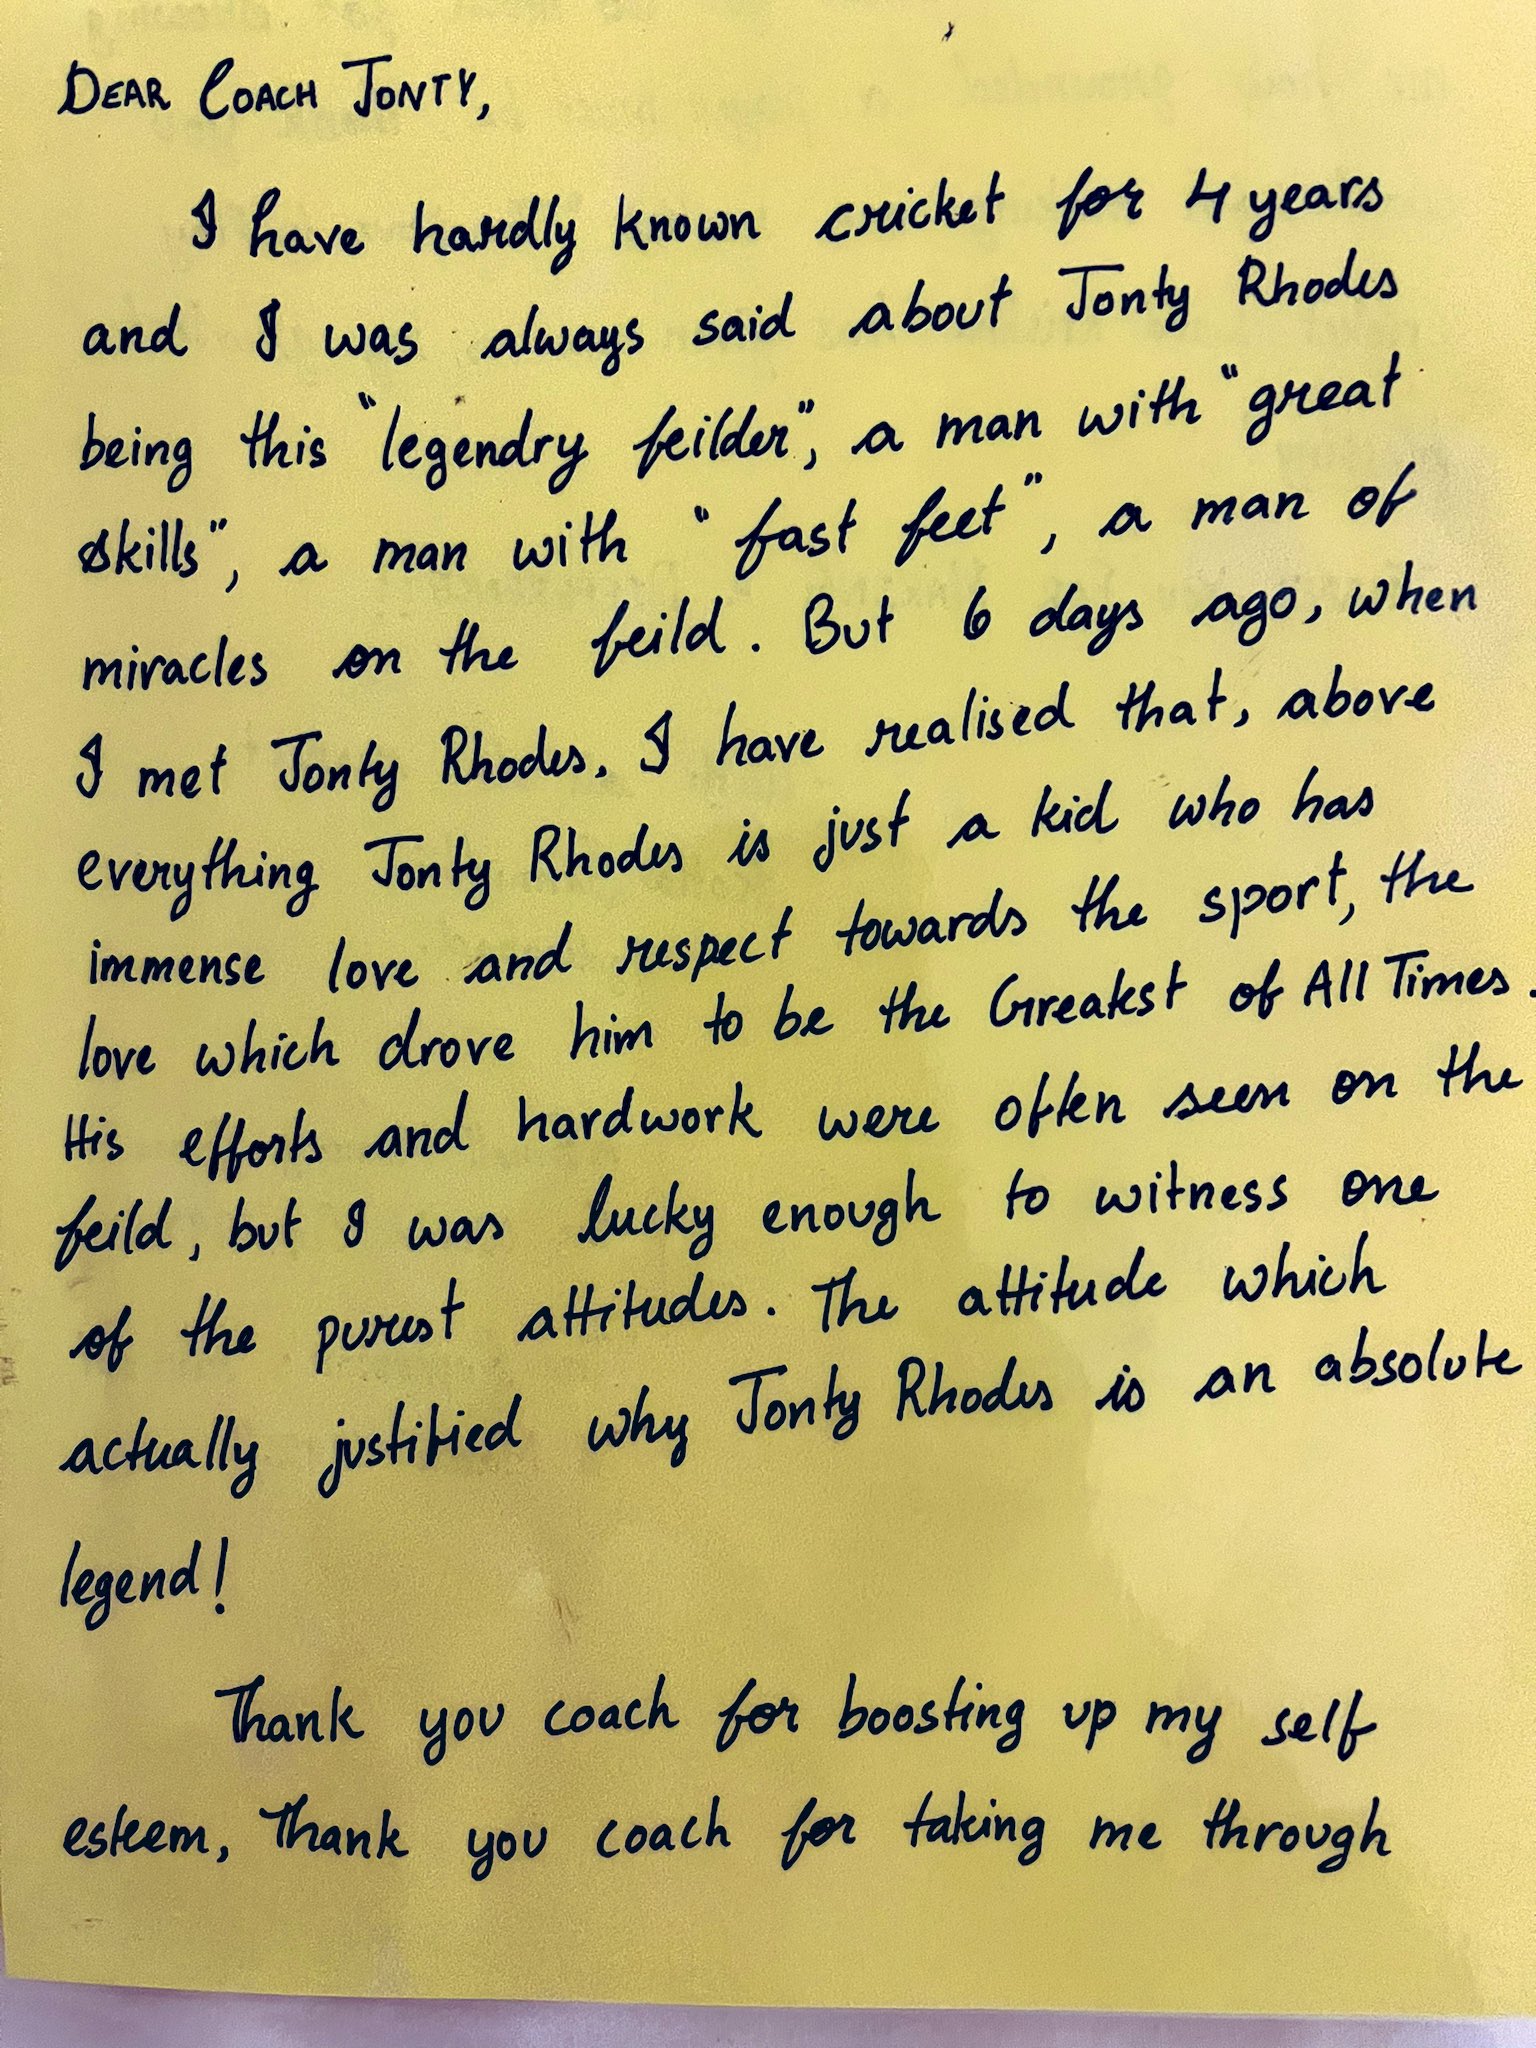 DEAR COACH JONTY,
I have hardly known cricket for 4 years
and I was always said about Jonty Rhodes
being this "legendry feilder", a man with "great
skills", a man with "fast feet", a man of
miracles on the feild. But 6 days ago, when
I met Jonty Rhodes. I have realised that, above
everything Jonty Rhodes is just a kid who has
immense love and respect towards the sport, the
love which drove him to be the Greatest of All Times.
His efforts and hardwork were often seen on the
feild, but I was lucky enough to witness one
of the purest attitudes. The attitude which
actually justified why Jonty Rhodes is an absolute
legend!
Thank you coach for boosting up my self
esteem, Thank you coach for taking me through